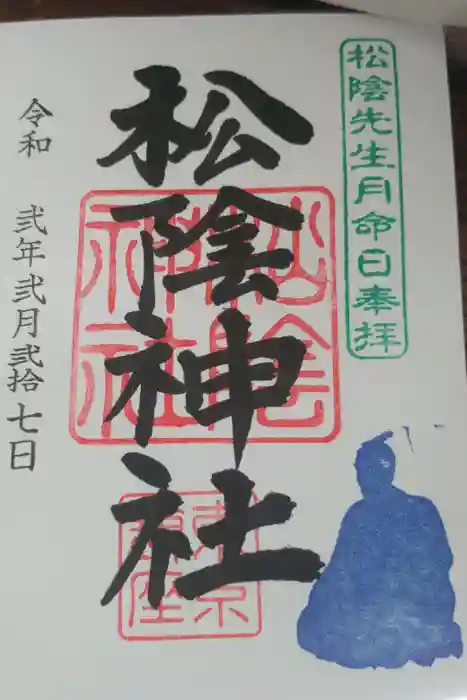 松陰先生月命日奉拝
松陰神社
松陰神社
東京
令和 弐年弐月弐拾七日